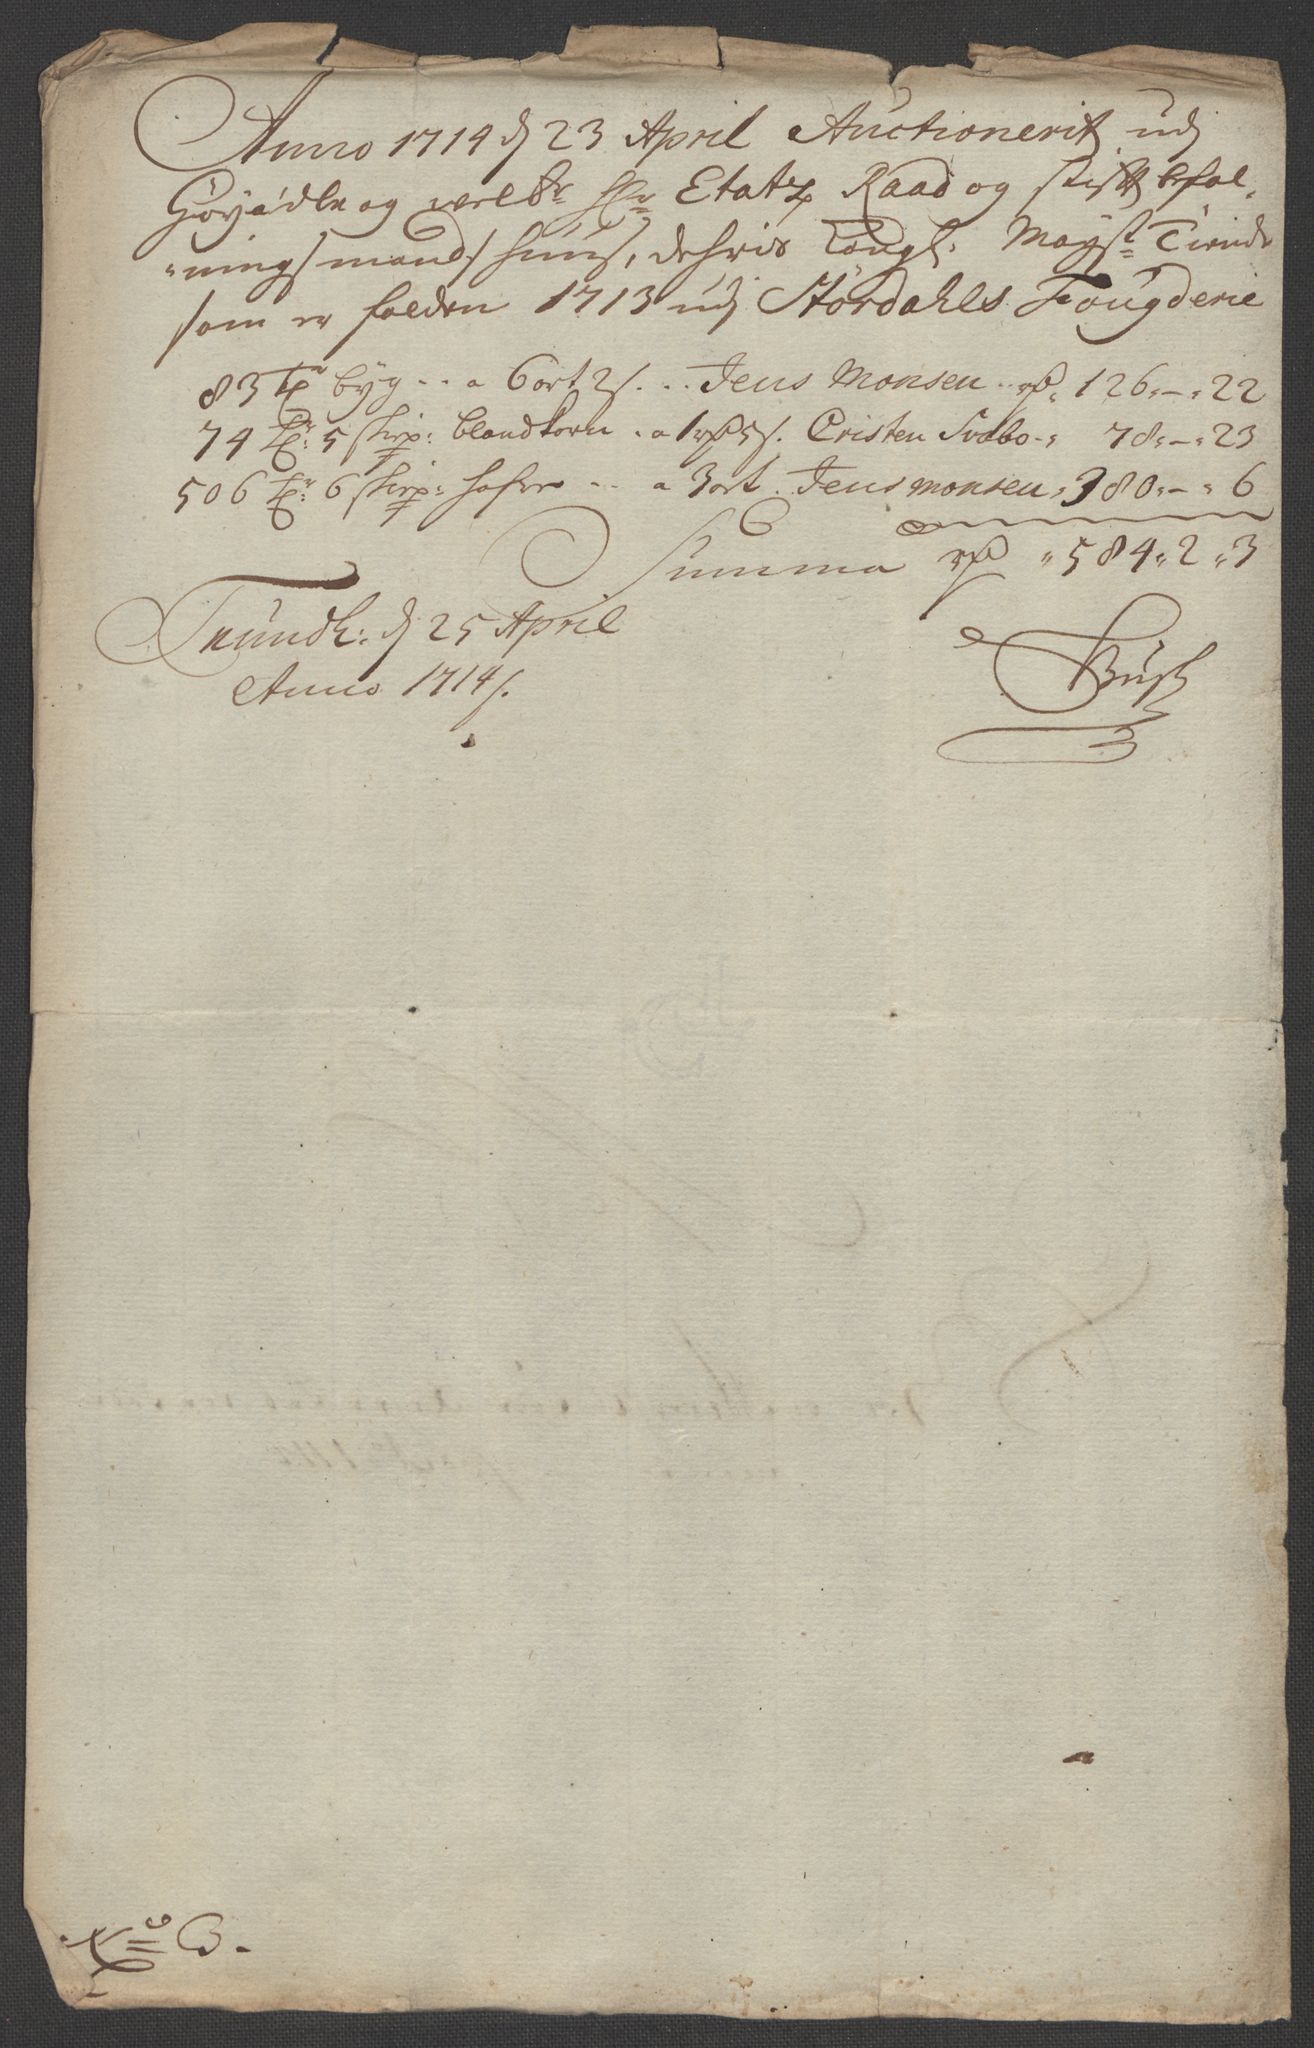 Anno 1714 d 23 April Auctionerit udj
Höyädle og velbr. Hr. Etatz Raad og Stifftbefal-
-ningsmands huus, dehris Kongl. Mayst. Tiende
som er falden 1713 udj Stördahls Fougderie
83 Tr byg .. a 6 ort 2 s. .. Jens Monsen .. rd. 126 - 22
74 Tr. 5 skep: blandkorn . a 1 rd 5 s. Cristen Svabo - 78 - 23
506 Tr. 6 skep: hafre .. a 3 ort . Jens Monsen 380 - 6
Summa rd 584 2 3
Trundh: d 25 April
Anno 1714.
Busch
No B.